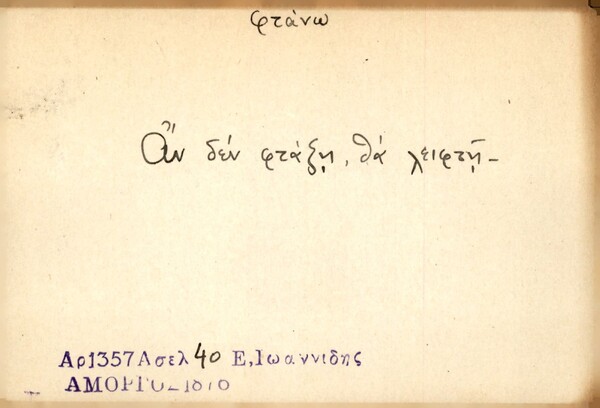 φτάνω
Ἂν δέν φτάξῃ, θά λειφτῇ-
Αρ1357Ασελ40 Ε,Ιωαννιδης
ΑΜΟΡΓΟΣ1876